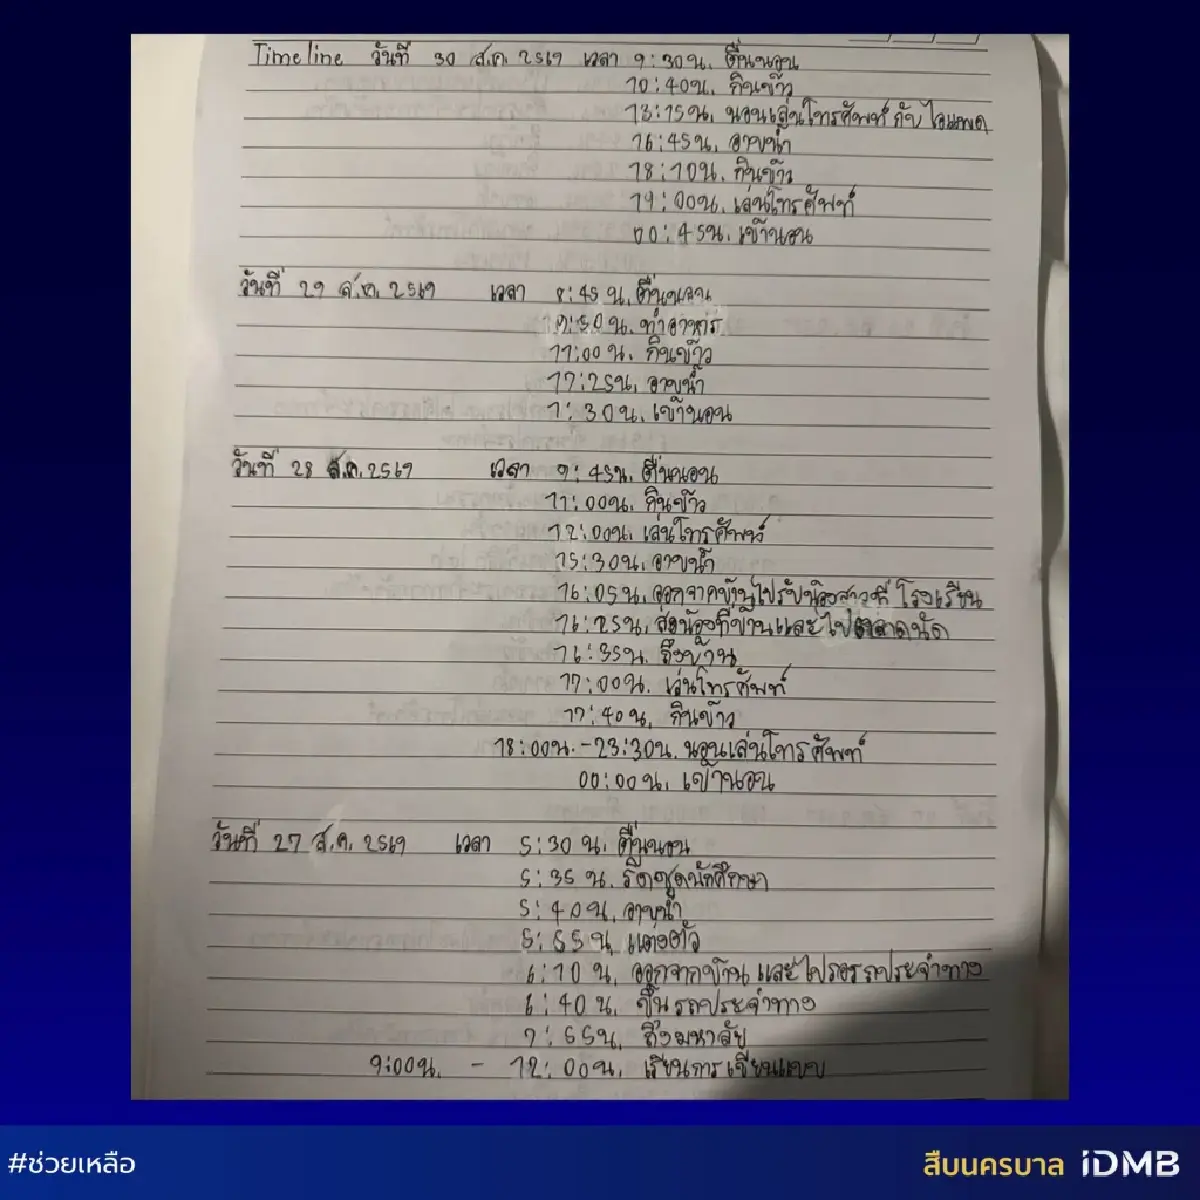 Timeline วันที่ 30 ส.ค. 2569 เวลา 9:30น. ตื่นนอน
10:40น. กินข้าว
13:15น. นอนเล่นโทรศัพท์ กับ ไอแพด
16:45น. อาบน้ำ
18:10น. กินข้าว
19:00น. เล่นโทรศัพท์
00:45น. เข้านอน
วันที่ 29 ส.ค. 2569 เวลา 8:45น. ตื่นนอน
9:50น. ทำอาหาร
11:00น. กินข้าว
17:25น. อาบน้ำ
1:30น. เข้านอน
วันที่ 28 ส.ค. 2569 เวลา 9:45น. ตื่นนอน
11:00น. กินข้าว
12:00น. เล่นโทรศัพท์
15:30น. อาบน้ำ
16:05น. ออกจากบ้านไปรับน้องสาวที่ โรงเรียน
16:25น. ส่งน้องที่บ้านและไปตลาดนัด
16:35น. ถึงบ้าน
17:00น. เล่นโทรศัพท์
17:40น. กินข้าว
18:00น. - 23:30น. นอนเล่นโทรศัพท์
00:00น. เข้านอน
วันที่ 27 ส.ค. 2569 เวลา 5:30 น. ตื่นนอน
5:35 น. รีดชุดนักศึกษา
5:40น. อาบน้ำ
5:55น. แต่งตัว
6:10 น. ออกจากบ้าน และไปรอรถประจำทาง
6:40 น. ขึ้นรถประจำทาง
7:55น. ถึงมหาลัย
9:00น. - 12:00น. เรียนการเขียนแบบ
#ช่วยเหลือ
สืบนครบาล iDMB